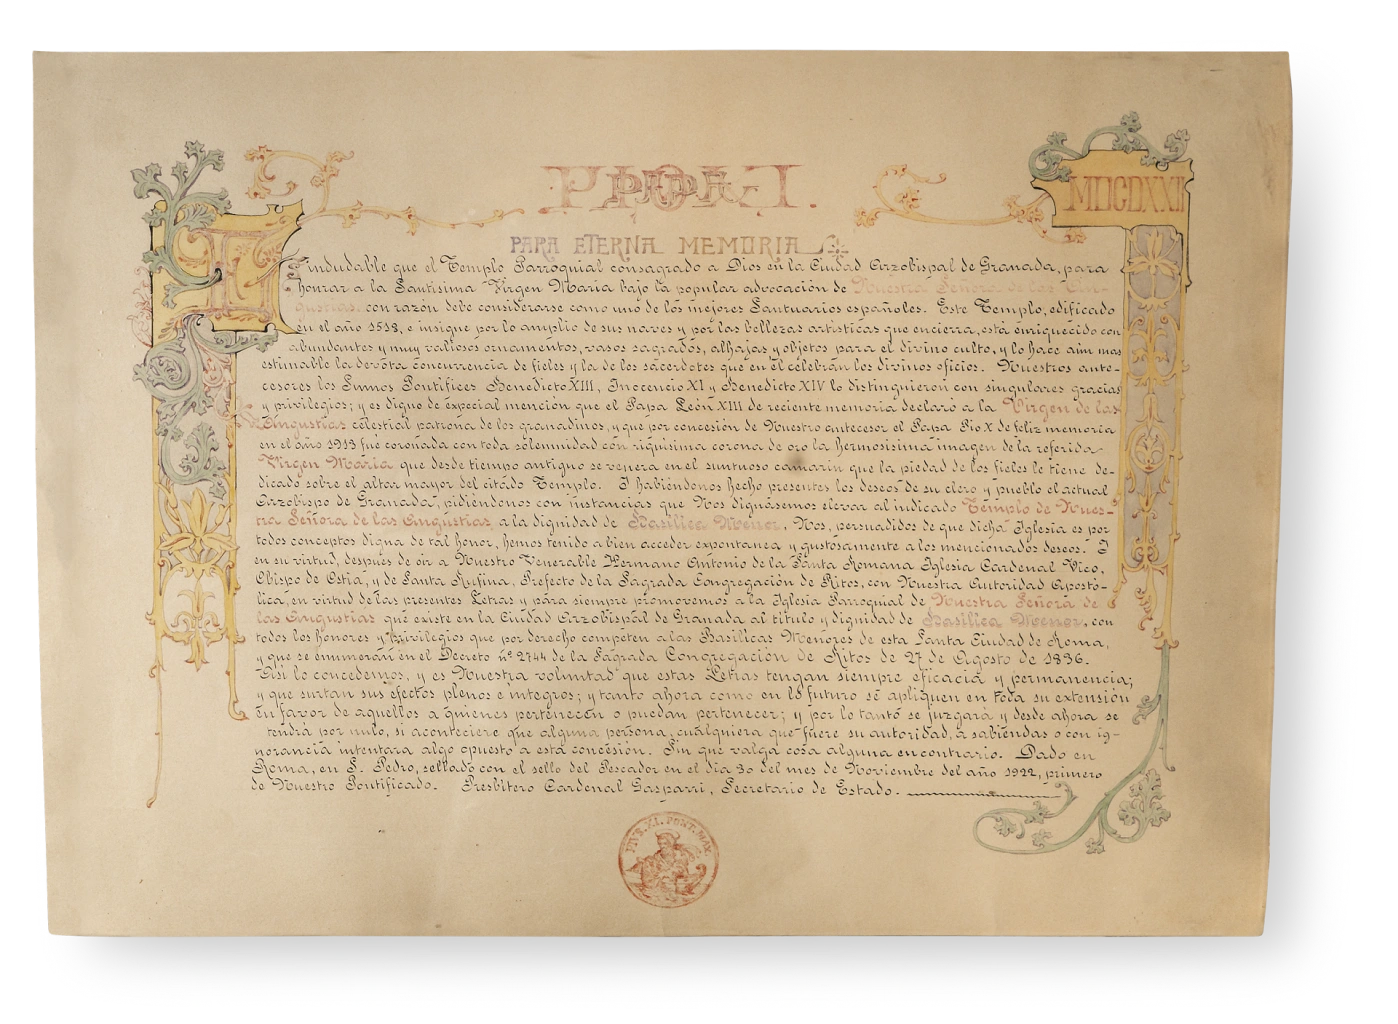 PAPA
MDCDXXII
PARA ETERNA MEMORIA
Es indudable que el Templo Parroquial consagrado a Dios en la Ciudad Arzobispal de Granada, para
honrar a la Santísima Virgen María bajo la popular advocación de Nuestra Señora de las An-
gustias, con razón debe considerarse como uno de los mejores Santuarios españoles. Este Templo, edificado
en el año 1518, e insigne por lo amplio de sus naves y por las bellezas artísticas que encierra, está enriquecido con
abundantes y muy valiosos ornamentos, vasos sagrados, alhajas y objetos para el divino culto, y lo hace aún mas
estimable la devota concurrencia de fieles y la de los sacerdotes que en él celebran los divinos oficios. Nuestros ante-
cesores los Sumos Pontífices Benedicto XIII, Inocencio XI y Benedicto XIV lo distinguieron con singulares gracias
y privilegios; y es digno de especial mención que el Papa León XIII de reciente memoria declaró a la Virgen de las
Angustias celestial patrona de los granadinos, y que por concesión de Nuestro antecesor el Papa Pio X de feliz memoria
en el año 1913 fué coronada con toda solemnidad con riquísima corona de oro la hermosísima imagen de la referida
Virgen María que desde tiempo antiguo se venera en el suntuoso camarín que la piedad de los fieles le tiene de-
dicado sobre el altar mayor del citado Templo. I habiéndonos hecho presentes los deseos de su clero y pueblo el actual
Arzobispo de Granada, pidiéndonos con instancias que Nos dignásemos elevar al indicado Templo de Nues-
tra Señora de las Angustias, a la dignidad de Basílica Menor, Nos, persuadidos de que dicha Iglesia es por
todos conceptos digna de tal honor, hemos tenido a bien acceder expontanea y gustosamente a los mencionados deseos. I
en su virtud, después de oir a Nuestro Venerable Hermano Antonio de la Santa Romana Iglesia Cardenal Vico,
Obispo de Ostia, y de Santa Rufina, Prefecto de la Sagrada Congregación de Ritos, con Nuestra Autoridad Apostó-
lica, en virtud de las presentes Letras y para siempre promovemos a la Iglesia Parroquial de Nuestra Señora de
las Angustias que existe en la Ciudad Arzobispal de Granada al título y dignidad de Basílica Menor, con
todos los honores y privilegios que por derecho competen a las Basílicas Menores de esta Santa Ciudad de Roma,
y que se enumeran en el Decreto nº 2744 de la Sagrada Congregación de Ritos de 27 de Agosto de 1836.
Así lo concedemos, y es Nuestra voluntad que estas Letras tengan siempre eficacia y permanencia;
y que surtan sus efectos plenos e íntegros; y tanto ahora como en lo futuro se apliquen en toda su extensión
en favor de aquellos a quienes pertenecen o puedan pertenecer; y por lo tanto se juzgará y desde ahora se
tendrá por nulo, si aconteciere que alguna persona, cualquiera que fuere su autoridad, a sabiendas o con ig-
norancia intentara algo opuesto a esta concesión. Sin que valga cosa alguna en contrario. Dado en
Roma, en S. Pedro, sellado con el sello del Pescador en el dia 30 del mes de Noviembre del año 1922, primero
de Nuestro Pontificado. Presbítero Cardenal Gasparri, Secretario de Estado.
PIVS. XI. PONT. MAX.